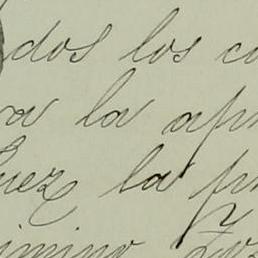 dos los co
va la apr
uez la pr
imino